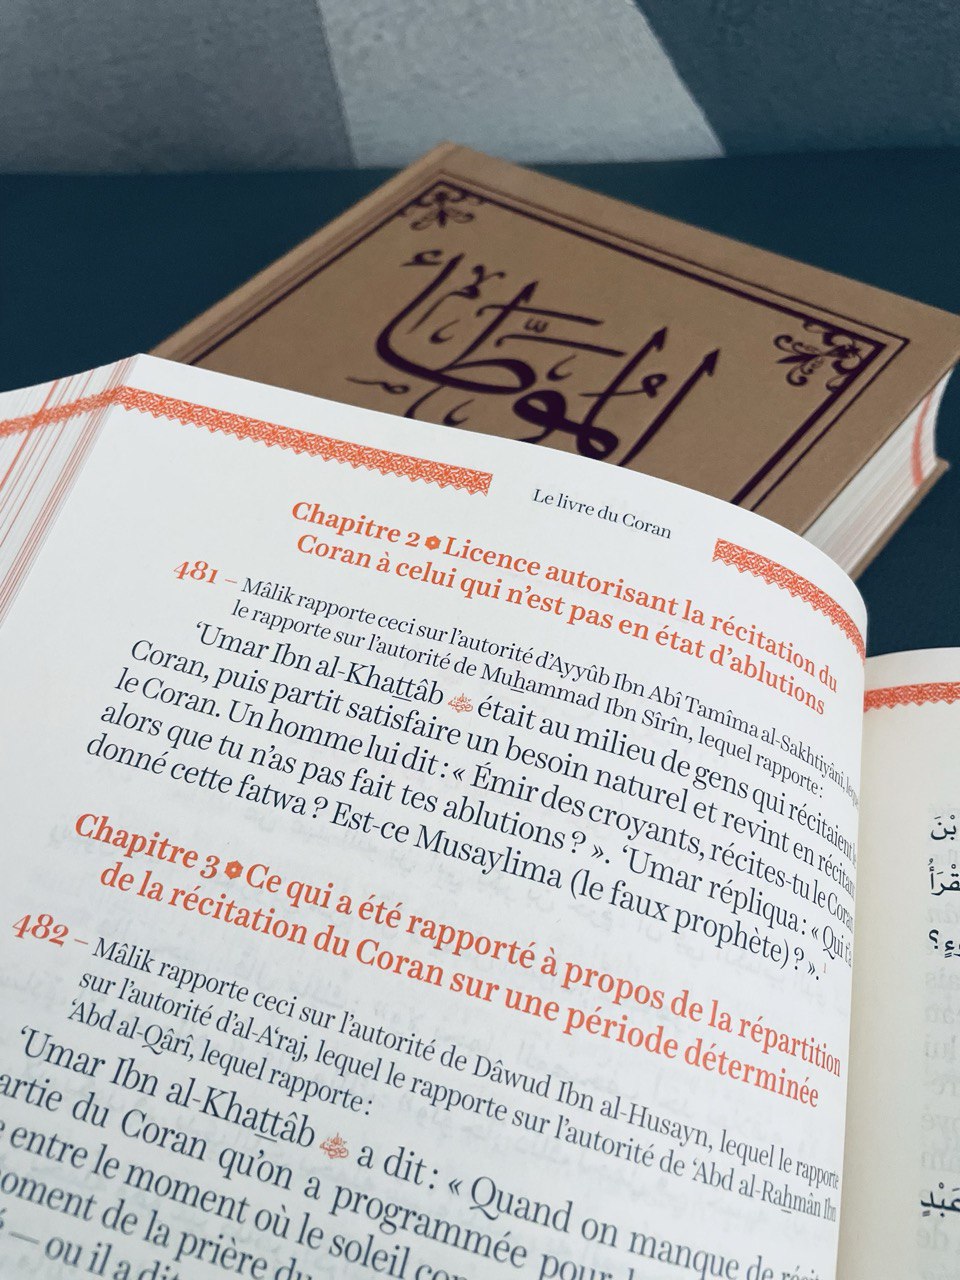 الموطأ
Le livre du Coran
Chapitre 2 Licence autorisant la récitation du
Coran à celui qui n’est pas en état d’ablutions
481 – Mâlik rapporte ceci sur l’autorité d’Ayyûb Ibn Abî Tamîma al-Sakhtiyânî,
le rapporte sur l’autorité de Muhammad Ibn Sîrîn, lequel rapporte :
‘Umar Ibn al-Khattâb était au milieu de gens qui récitaient
Coran, puis partit satisfaire un besoin naturel et revint en
le Coran. Un homme lui dit : « Émir des croyants, récites-tu le Coran
alors que tu n’as pas fait tes ablutions ? ». ‘Umar répliqua : « Qui t’a
donné cette fatwa ? Est-ce Musaylima (le faux prophète) ? ».
Chapitre 3 Ce qui a été rapporté à propos de la répartition
de la récitation du Coran sur une période déterminée
482 – Mâlik rapporte ceci sur l’autorité de Dâwud Ibn al-Husayn, lequel le rapporte
sur l’autorité d’al-A‘raj, lequel le rapporte sur l’autorité de ‘Abd al-Rahmân Ibn
‘Abd al-Qârî, lequel rapporte :
‘Umar Ibn al-Khattâb a dit : « Quand on manque de
partie du Coran qu’on a programmée pour
entre le moment où le soleil
moment de la prière du
— ou il a dit